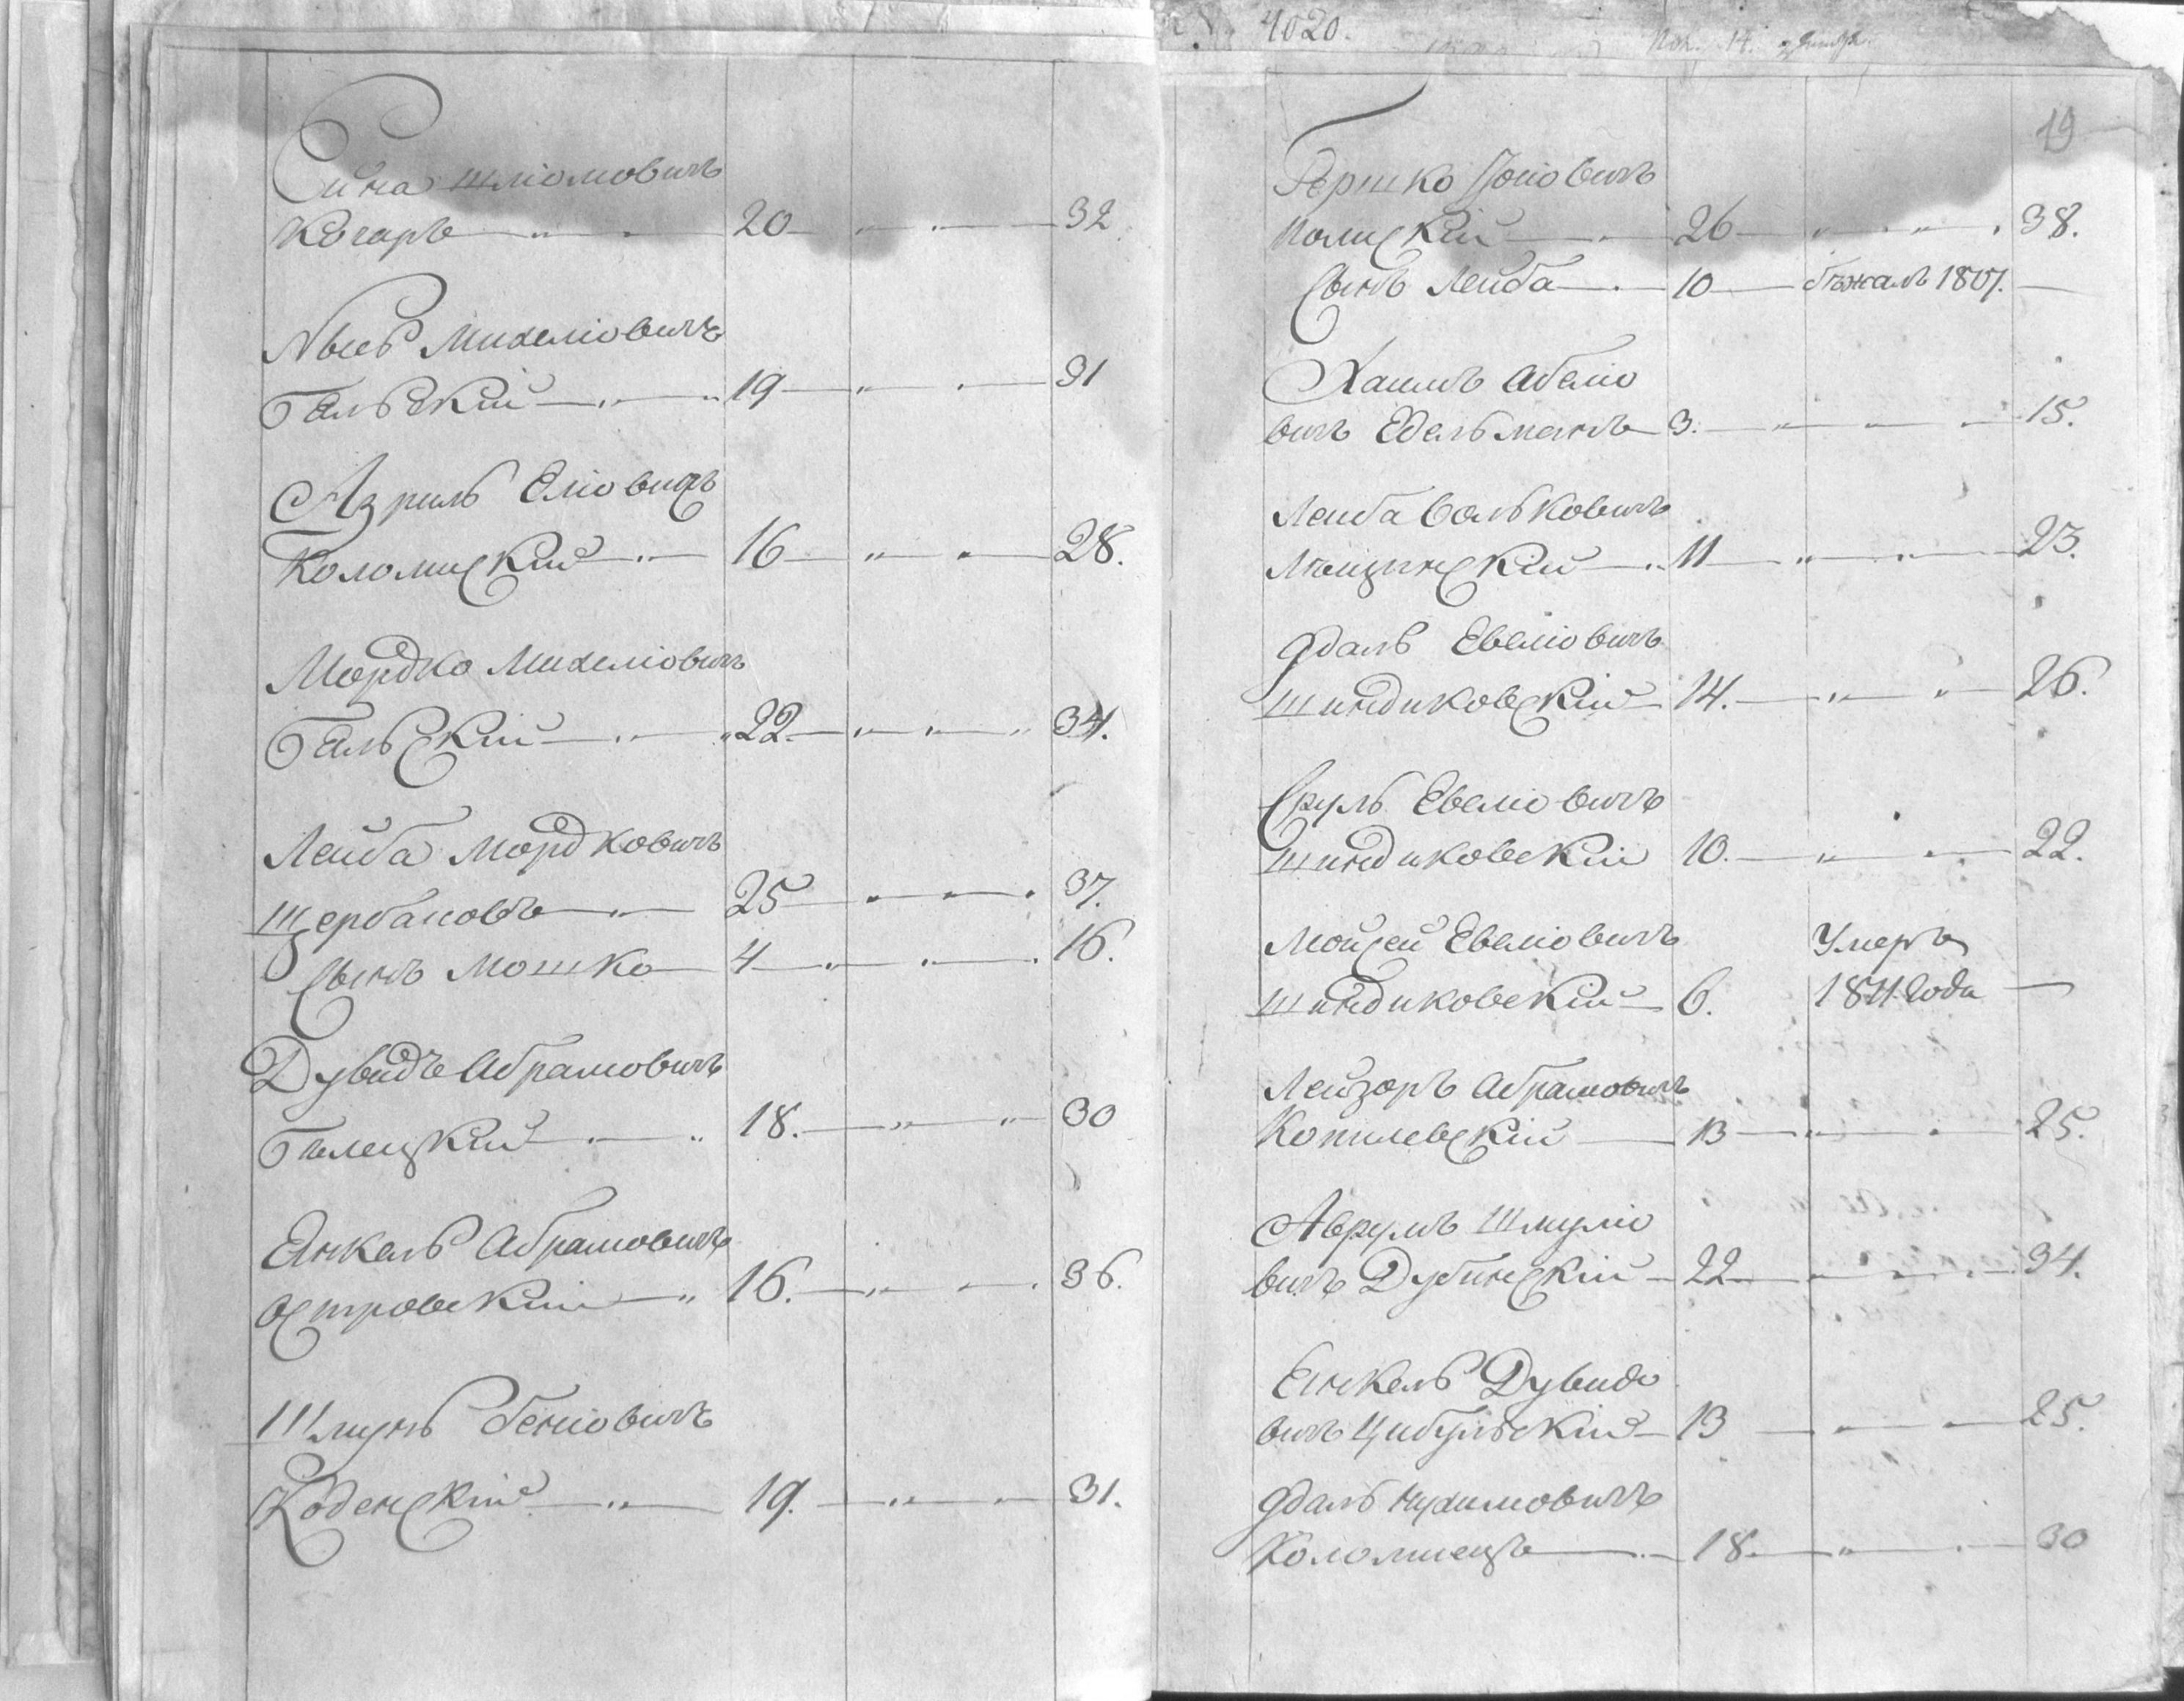 Сина Шліомовичъ
Когаръ 20 32
Михеліовичъ
Гальскій 19 31
Азриль Еліовичъ
Коломискій 16 28.
Мордко Михеліовичъ
Гальскій 22 34.
Лейба Мордковичъ
Щербановъ 25 37.
Сынъ Мошко 4 16.
Дувидъ Абрамовичъ
Гилецкій 18. 30
Енкель Абрамовичъ
Островскій 16. 36.
Шмуль Беніовичъ
Коденскій 19. 31.
4020.
19
Гершко
Полискій 26 38.
Сынъ Лейба 10 бѣжалъ 1807.
Хаимъ Абеліо
вичъ Едельманъ 3. 15.
Лейба Вольковичъ
Мощинскій 11 23.
Юдаль Евеліовичъ
Шиндиковскій 14. 26.
Сруль Евеліовичъ
Шиндиковскій 10. 22.
Мойсей Евеліовичъ Умеръ
Шиндиковскій 6. 1811 Года
Лейзоръ Абрамовичъ
Копилевскій 13 25.
Аврумъ Шмуліо
вичъ Дубинскій 22 34.
Енкель Дувидо
вичъ Цибульскій 13 25.
Юдаль Нухимовичъ
Коломіецъ 18. 30